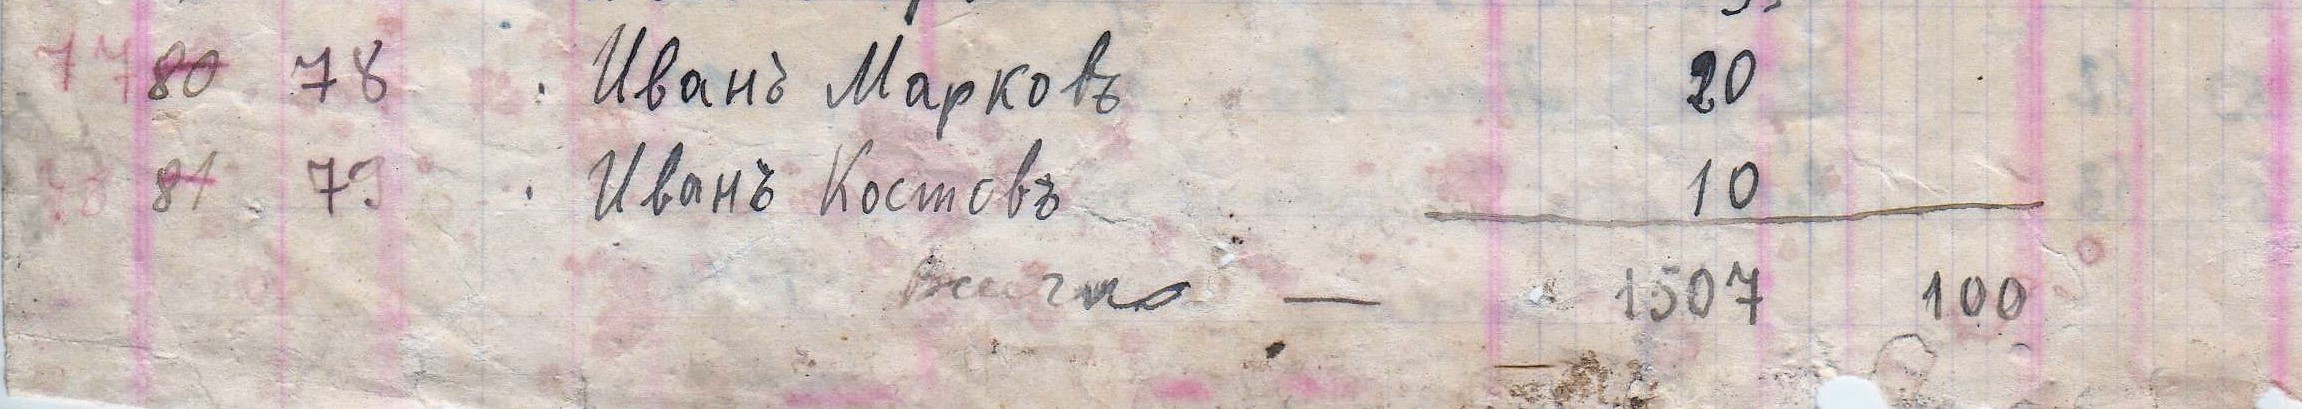 77 80 78 . Иванъ Марковъ 20
78 81 79 . Иванъ Костовъ 10
Всичко — 1507 100